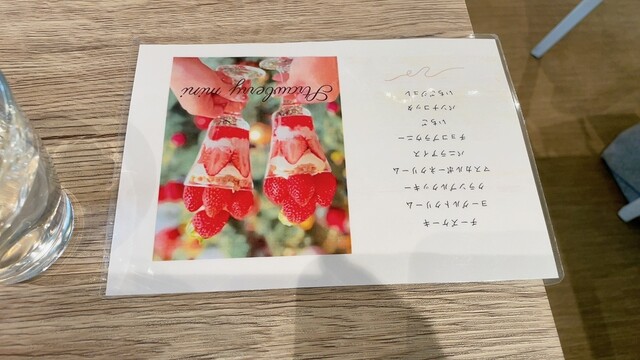 チーズケーキ
ヨーグルトクリーム
クランブルクッキー
マスカルポーネクリーム
バニラアイス
チョコブラウニー
いちご
パンナコッタ
いちごジュレ
Strawberry mini